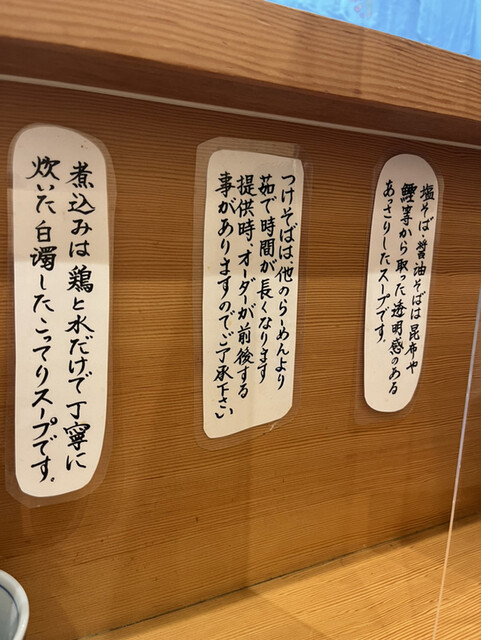 塩そば・醤油そばは昆布や
鰹等から取った透明感のある
あっさりしたスープです。
つけそばは、他のらーめんより
茹で時間が長くなります
提供時、オーダーが前後する
事がありますのでご了承下さい
煮込みは鶏と水だけで丁寧に
炊いた白濁した、こってりスープです。